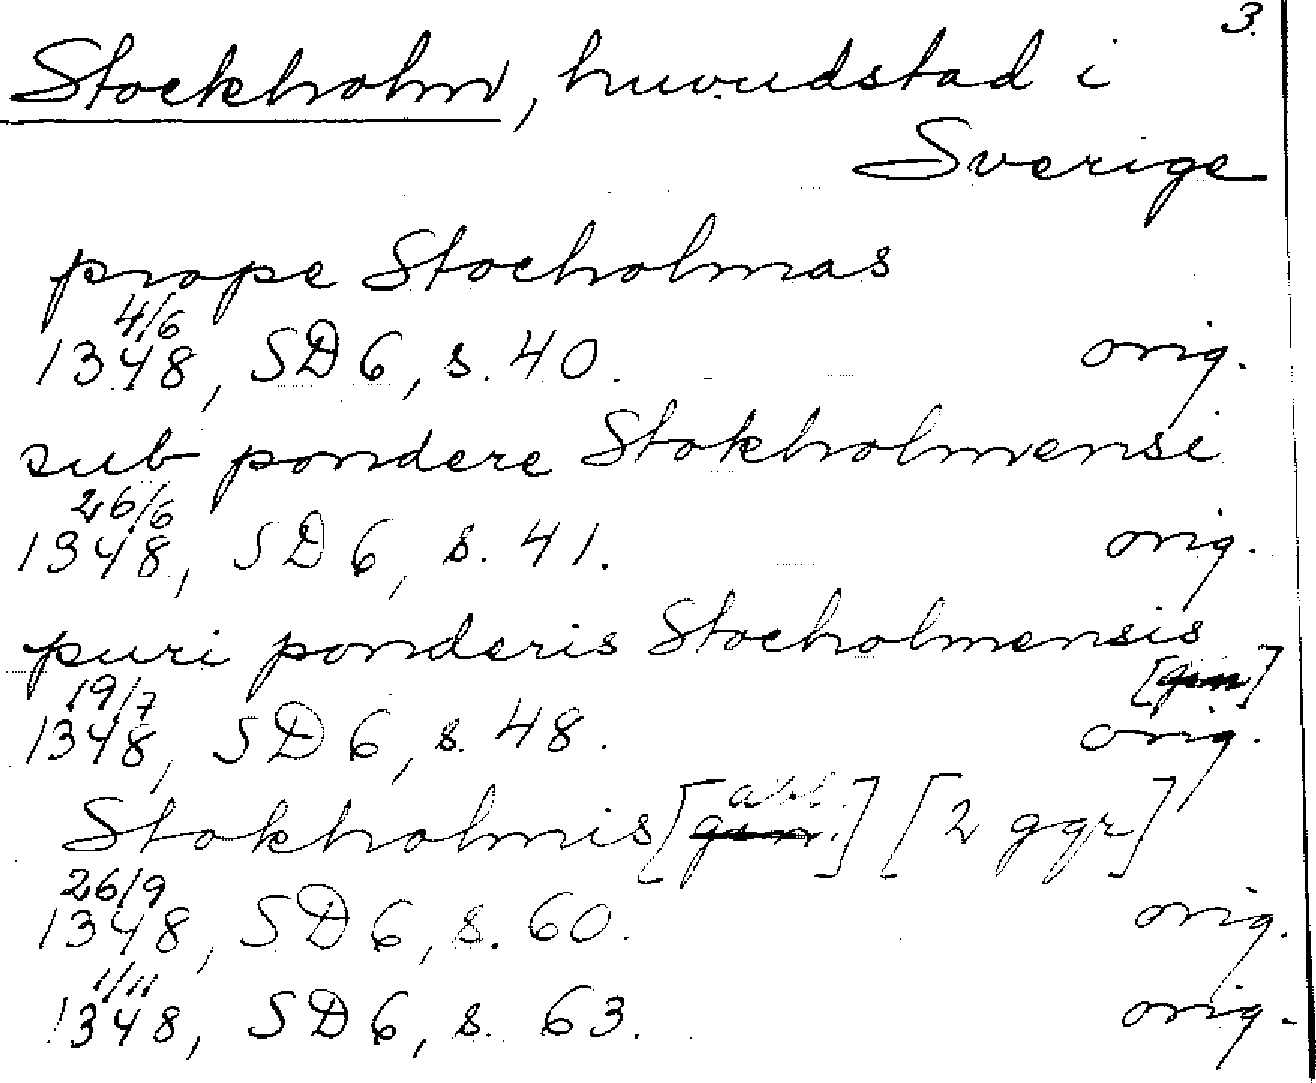 3.
Stockholm, huvudstad i
Sverige
prope Stocholmas
4/6
1348, SD 6, s. 40. orig.
sub pondere Stokholmensi
26/6
1348, SD 6, s. 41. orig.
puri ponderis Stocholmensis
[gen]
19/7
1348, SD 6, s. 48. orig.
abl.
Stokholmis [gen.] [2 ggr]
26/9
1348, SD 6, s. 60. orig.
1/11
1348, SD 6, s. 63. orig.